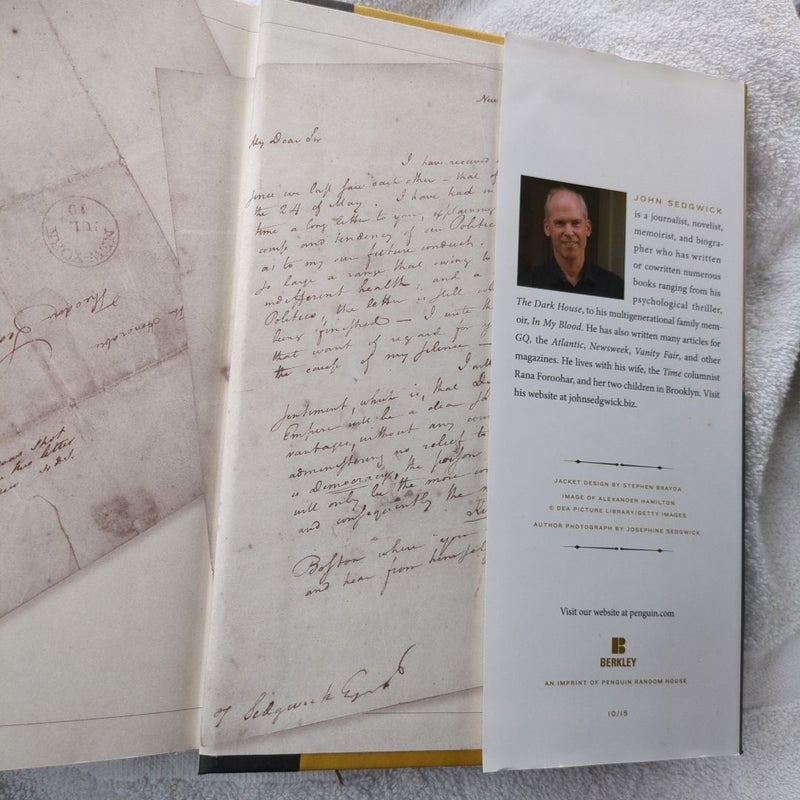 NEW-YORK
JUL
10
The Honorable
Theodore Sed
was shot
this letter
New
My Dear Sir
I have received
since we last saw each other — that of
the 24 of May. I have had in
time a long letter to you, explaining
and tendency of our Politics
as to my our future conduct.
so large a range that owing to
indifferent health, and a
Politics, the letter is still
being finished — I write this
that want of regard for y
the cause of my silence —
I will
Sentiment, which is, that Dis
Empire will be a clear sa
vantages, without any coun
administering no relief to
is Democracy, the poison
will only be the more con
and consequently the m
Boston where you
and hear from himself
T Sedgwick Esqr
JOHN SEDGWICK
is a journalist, novelist,
memoirist, and biogra-
pher who has written
or cowritten numerous
books ranging from his
psychological thriller,
The Dark House, to his multigenerational family mem-
oir, In My Blood. He has also written many articles for
GQ, the Atlantic, Newsweek, Vanity Fair, and other
magazines. He lives with his wife, the Time columnist
Rana Foroohar, and her two children in Brooklyn. Visit
his website at johnsedgwick.biz.
JACKET DESIGN BY STEPHEN BRAYDA
IMAGE OF ALEXANDER HAMILTON
© DEA PICTURE LIBRARY/GETTY IMAGES
AUTHOR PHOTOGRAPH BY JOSEPHINE SEDGWICK
Visit our website at penguin.com
B
BERKLEY
AN IMPRINT OF PENGUIN RANDOM HOUSE
10/15